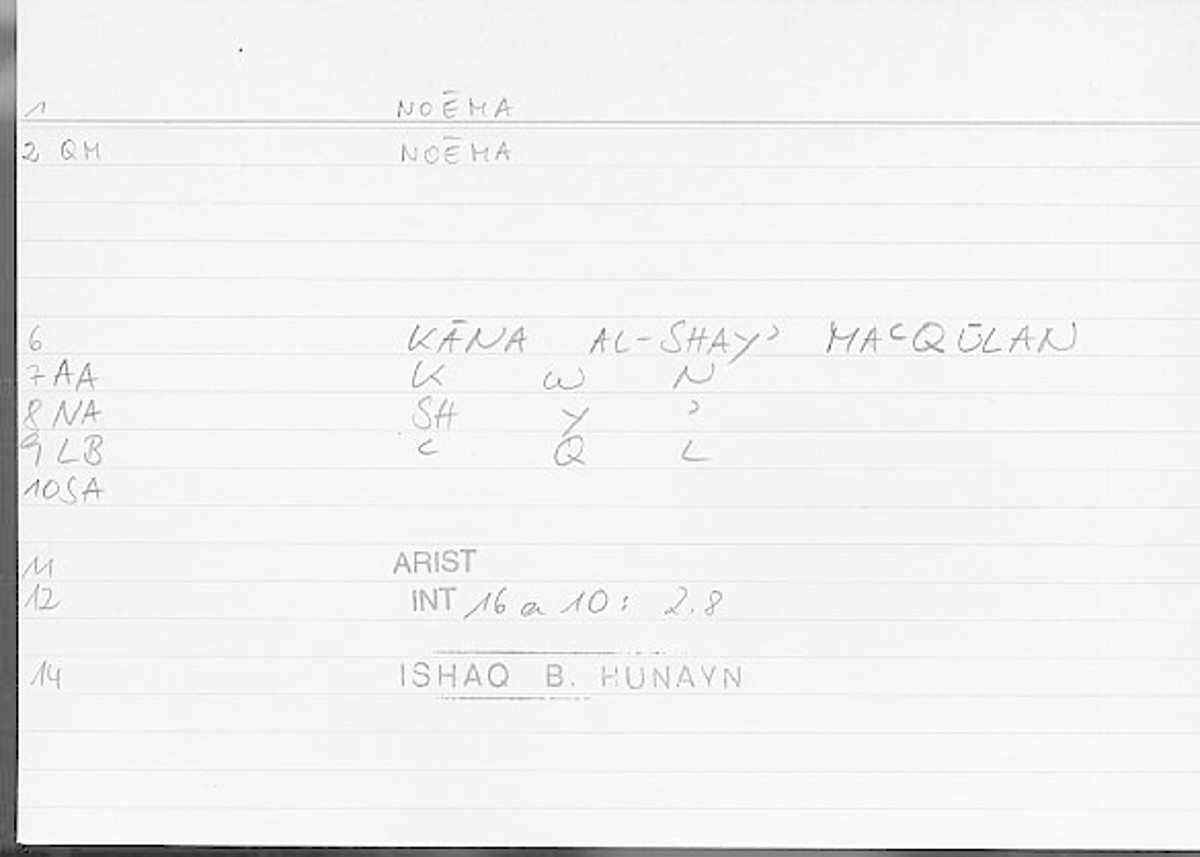 1 NOĒMA
2 QM NOĒMA
6 KĀNA AL-SHAYʾ MAʿQŪLAN
7 AA K W N
8 NA SH Y ʾ
9 LB ʿ Q L
10 SA
11 ARIST
12 INT 16 a 10: 2.8
14 ISHAQ B. HUNAYN